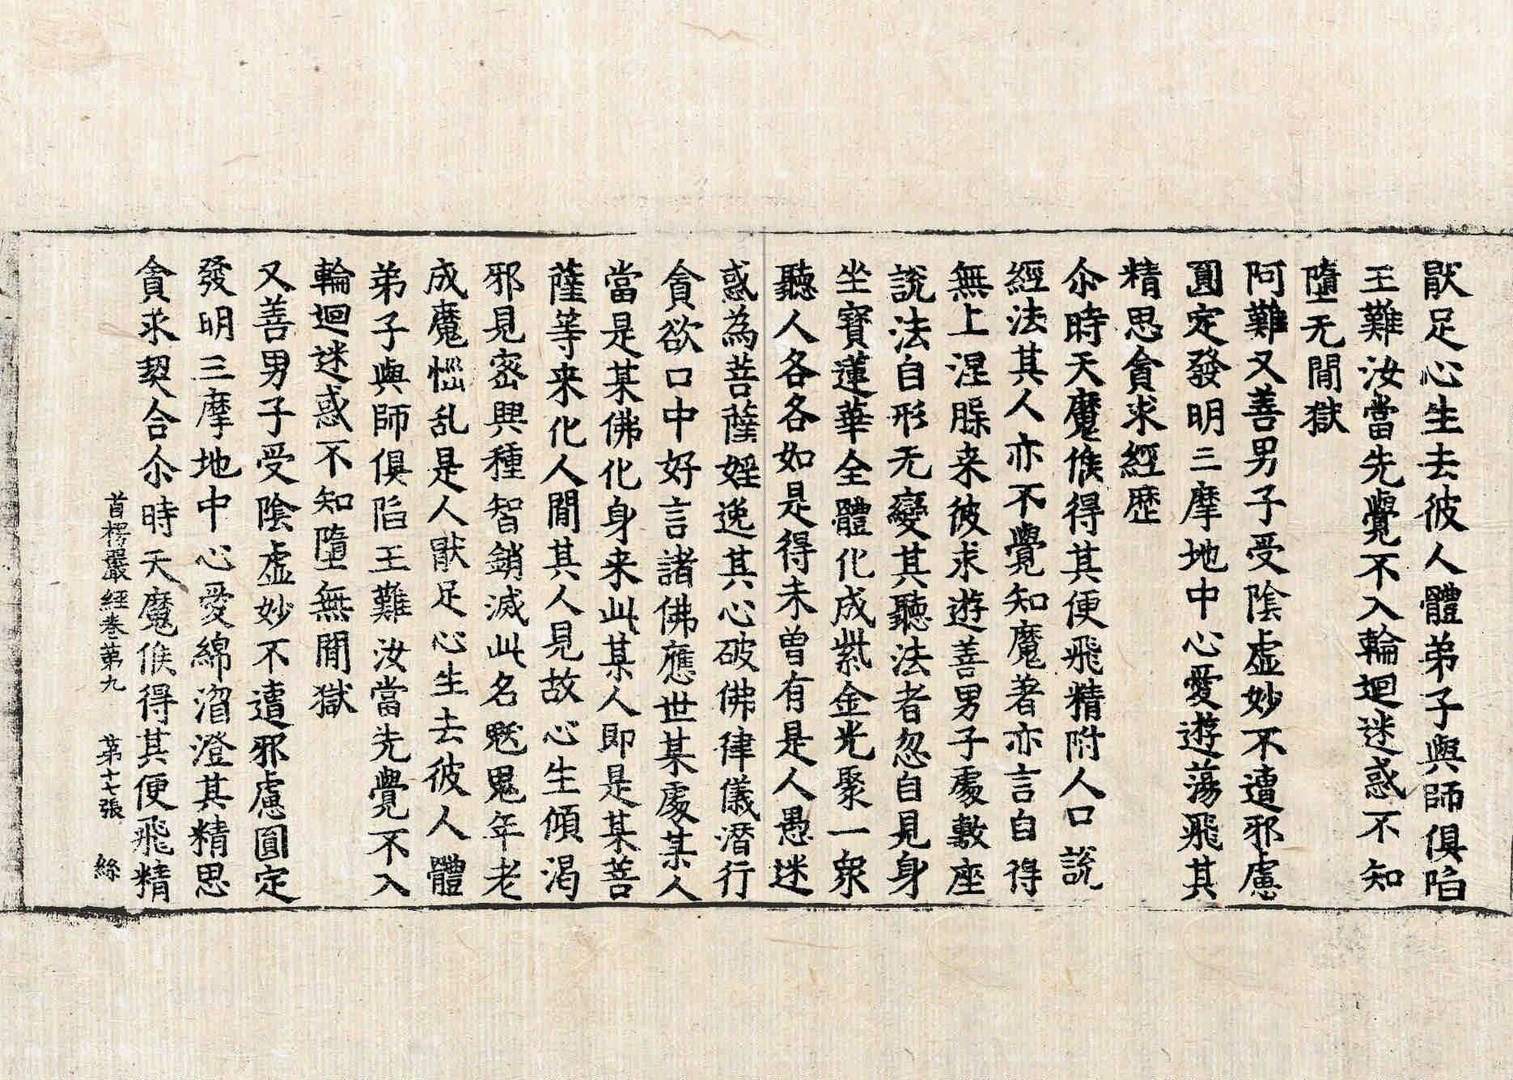 猒足心生去彼人體弟子與師俱陷
王難汝當先覺不入輪迴迷惑不知
墮无閒獄
阿難又善男子受陰虛妙不遭邪慮
圓定發明三摩地中心愛遊蕩飛其
精思貪求經歷
尒時天魔候得其便飛精附人口說
經法其人亦不覺知魔著亦言自得
無上涅槃来彼求遊善男子處敷座
說法自形无變其聽法者忽自見身
坐寶蓮華全體化成紫金光聚一衆
聽人各各如是得未曾有是人愚迷
惑為菩薩婬逸其心破佛律儀潛行
貪欲口中好言諸佛應世某處某人
當是某佛化身来此某人即是某菩
薩等来化人間其人見故心生傾渴
邪見密興種智銷滅此名魃鬼年老
成魔惱乱是人猒足心生去彼人體
弟子與師俱陷王難汝當先覺不入
輪迴迷惑不知墮無閒獄
又善男子受陰虛妙不遭邪慮圓定
發明三摩地中心愛綿㴠澄其精思
貪求契合尒時天魔候得其便飛精
首楞嚴經卷第九　第十七張　絲